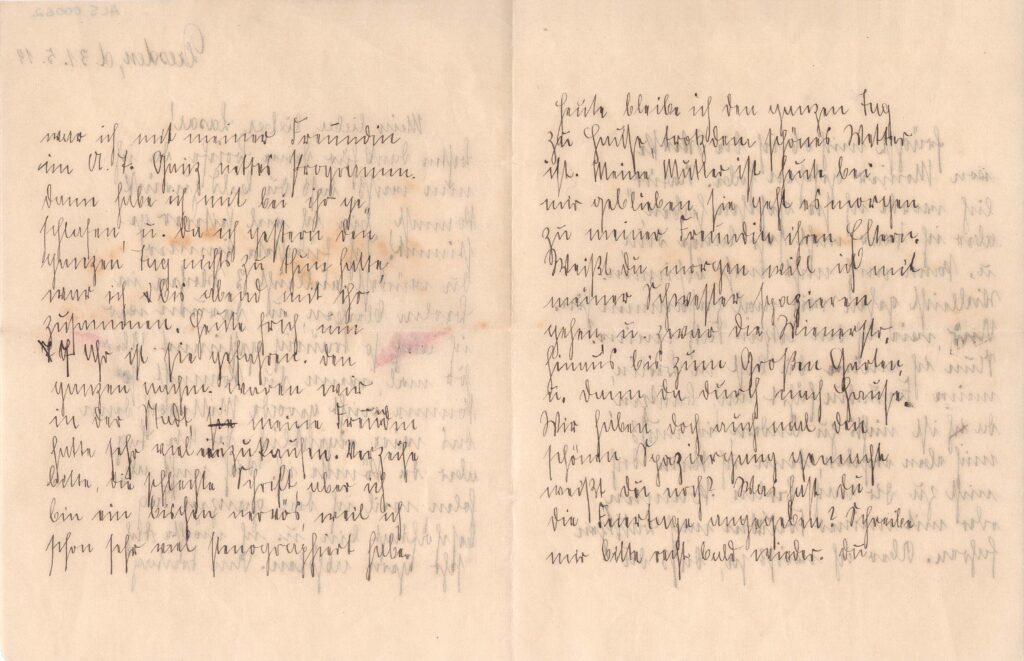 war ich mit meiner Freundin
im U. T. Ganz nettes Programm.
dann habe ich mit bei ihr ge
schlafen, u. Da ich gestern den
ganzen Tag nichts zu thun hatte
war ich bis abend mit ihr
zusammen. Heute früh um
7 Uhr ist sie gefahren. den
ganzen nachm. waren wir
in der Stadt, meine Freundin
hatte sehr viel einzukaufen. Verzeihe
bitte, die schlechte Schrift aber ich
bin ein bischen nervös, weil ich
schon sehr viel stenographiert habe.
Heute bleibe ich den ganzen Tag
zu Hause, trotzdem schönes Wetter
ist. Meine Mutter ist heute bei
mir geblieben sie geht erst morgen
zu meiner Freundin ihren Eltern.
Weißt du morgen will ich mit
meiner Schwester spazieren
gehen u. zwar die Wienerstr.
hinaus bis zum Großen Garten
u. dann da durch nach Hause.
Wir haben doch auch mal den
schönen Spaziergang gemacht
weißt du noch? Was hast du
die Feiertage angegeben? Schreibe
mir bitte recht bald wieder. Du